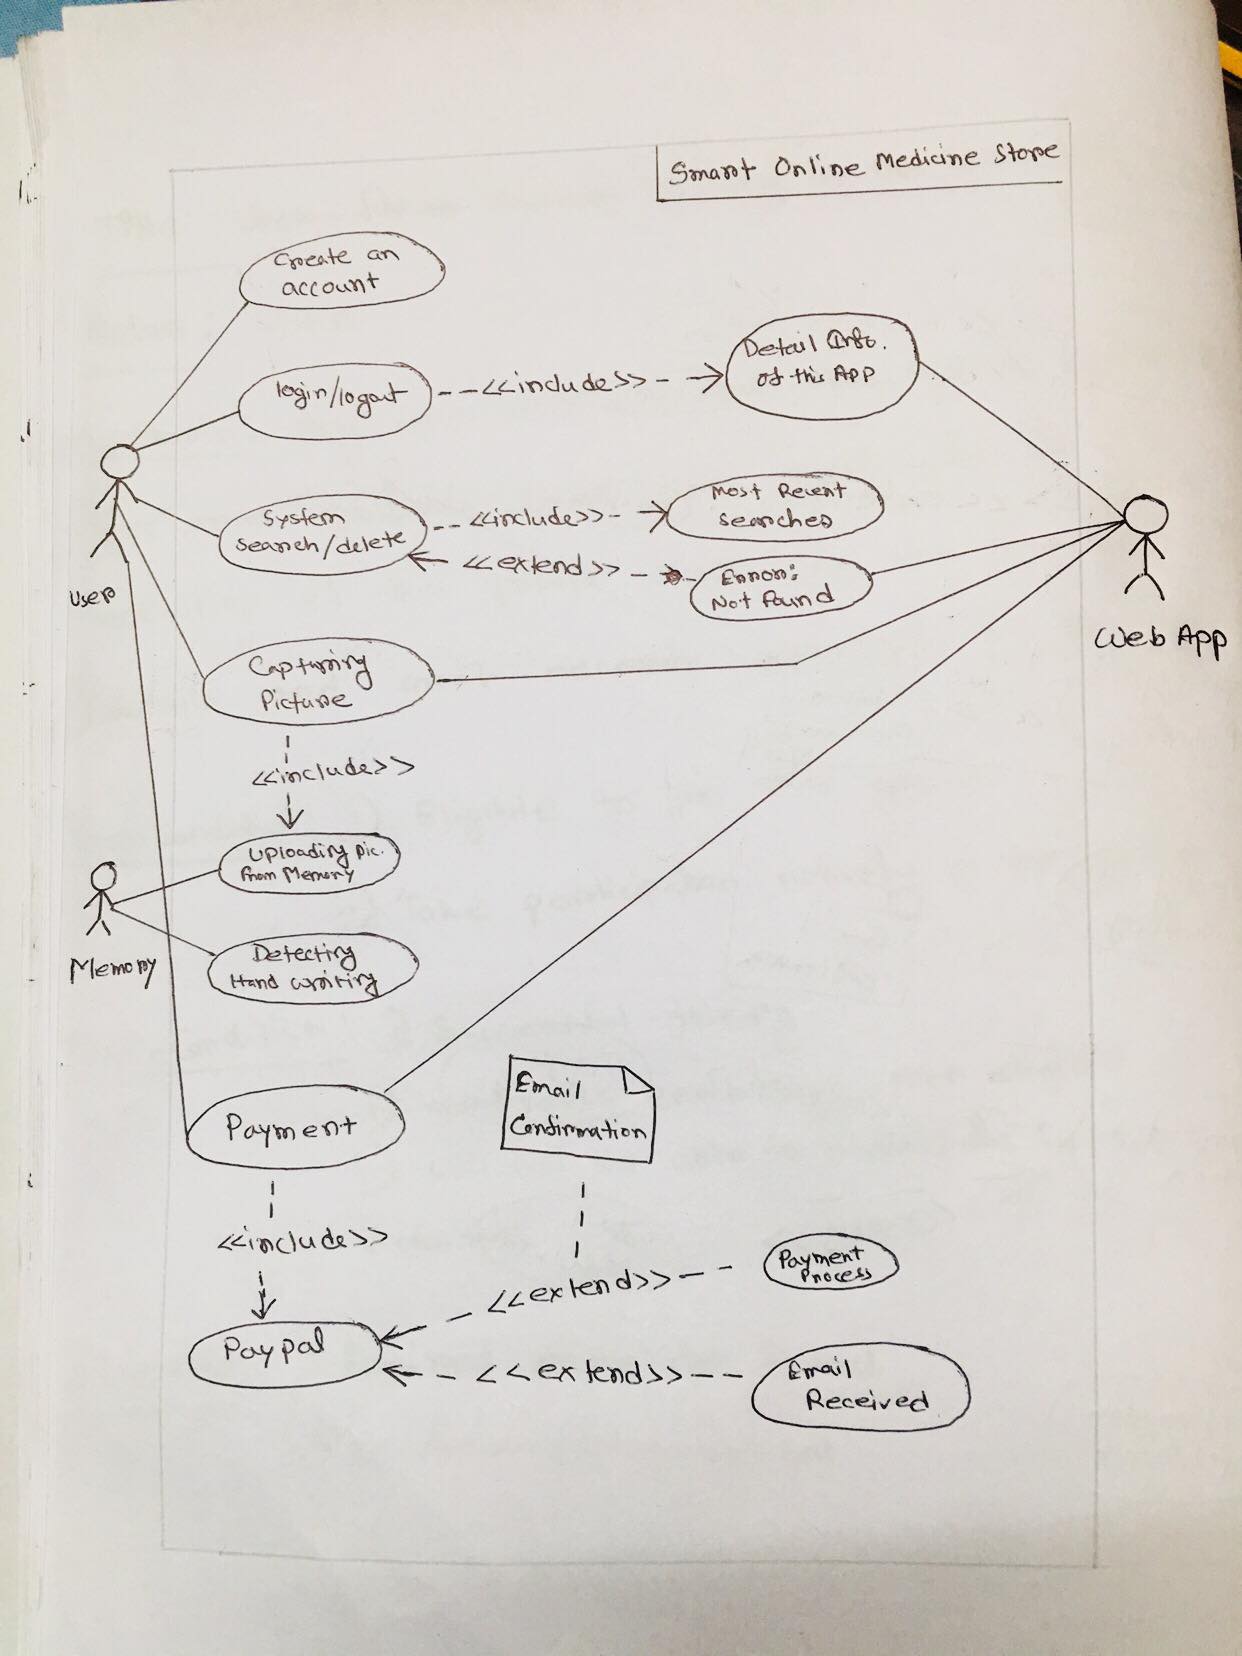 Smart Online Medicine Store
Create an
account
login/logout
<<include>>
Detail Info.
of this App
System
search/delete
<<include>>
Most Recent
searches
<<extend>>
Error:
Not found
User
Web App
Capturing
Picture
<<include>>
Uploading pic.
from Memory
Memory
Detecting
Hand writing
Email
Confirmation
Payment
<<include>>
<<extend>>
Payment
Process
Paypal
<<extend>>
Email
Received